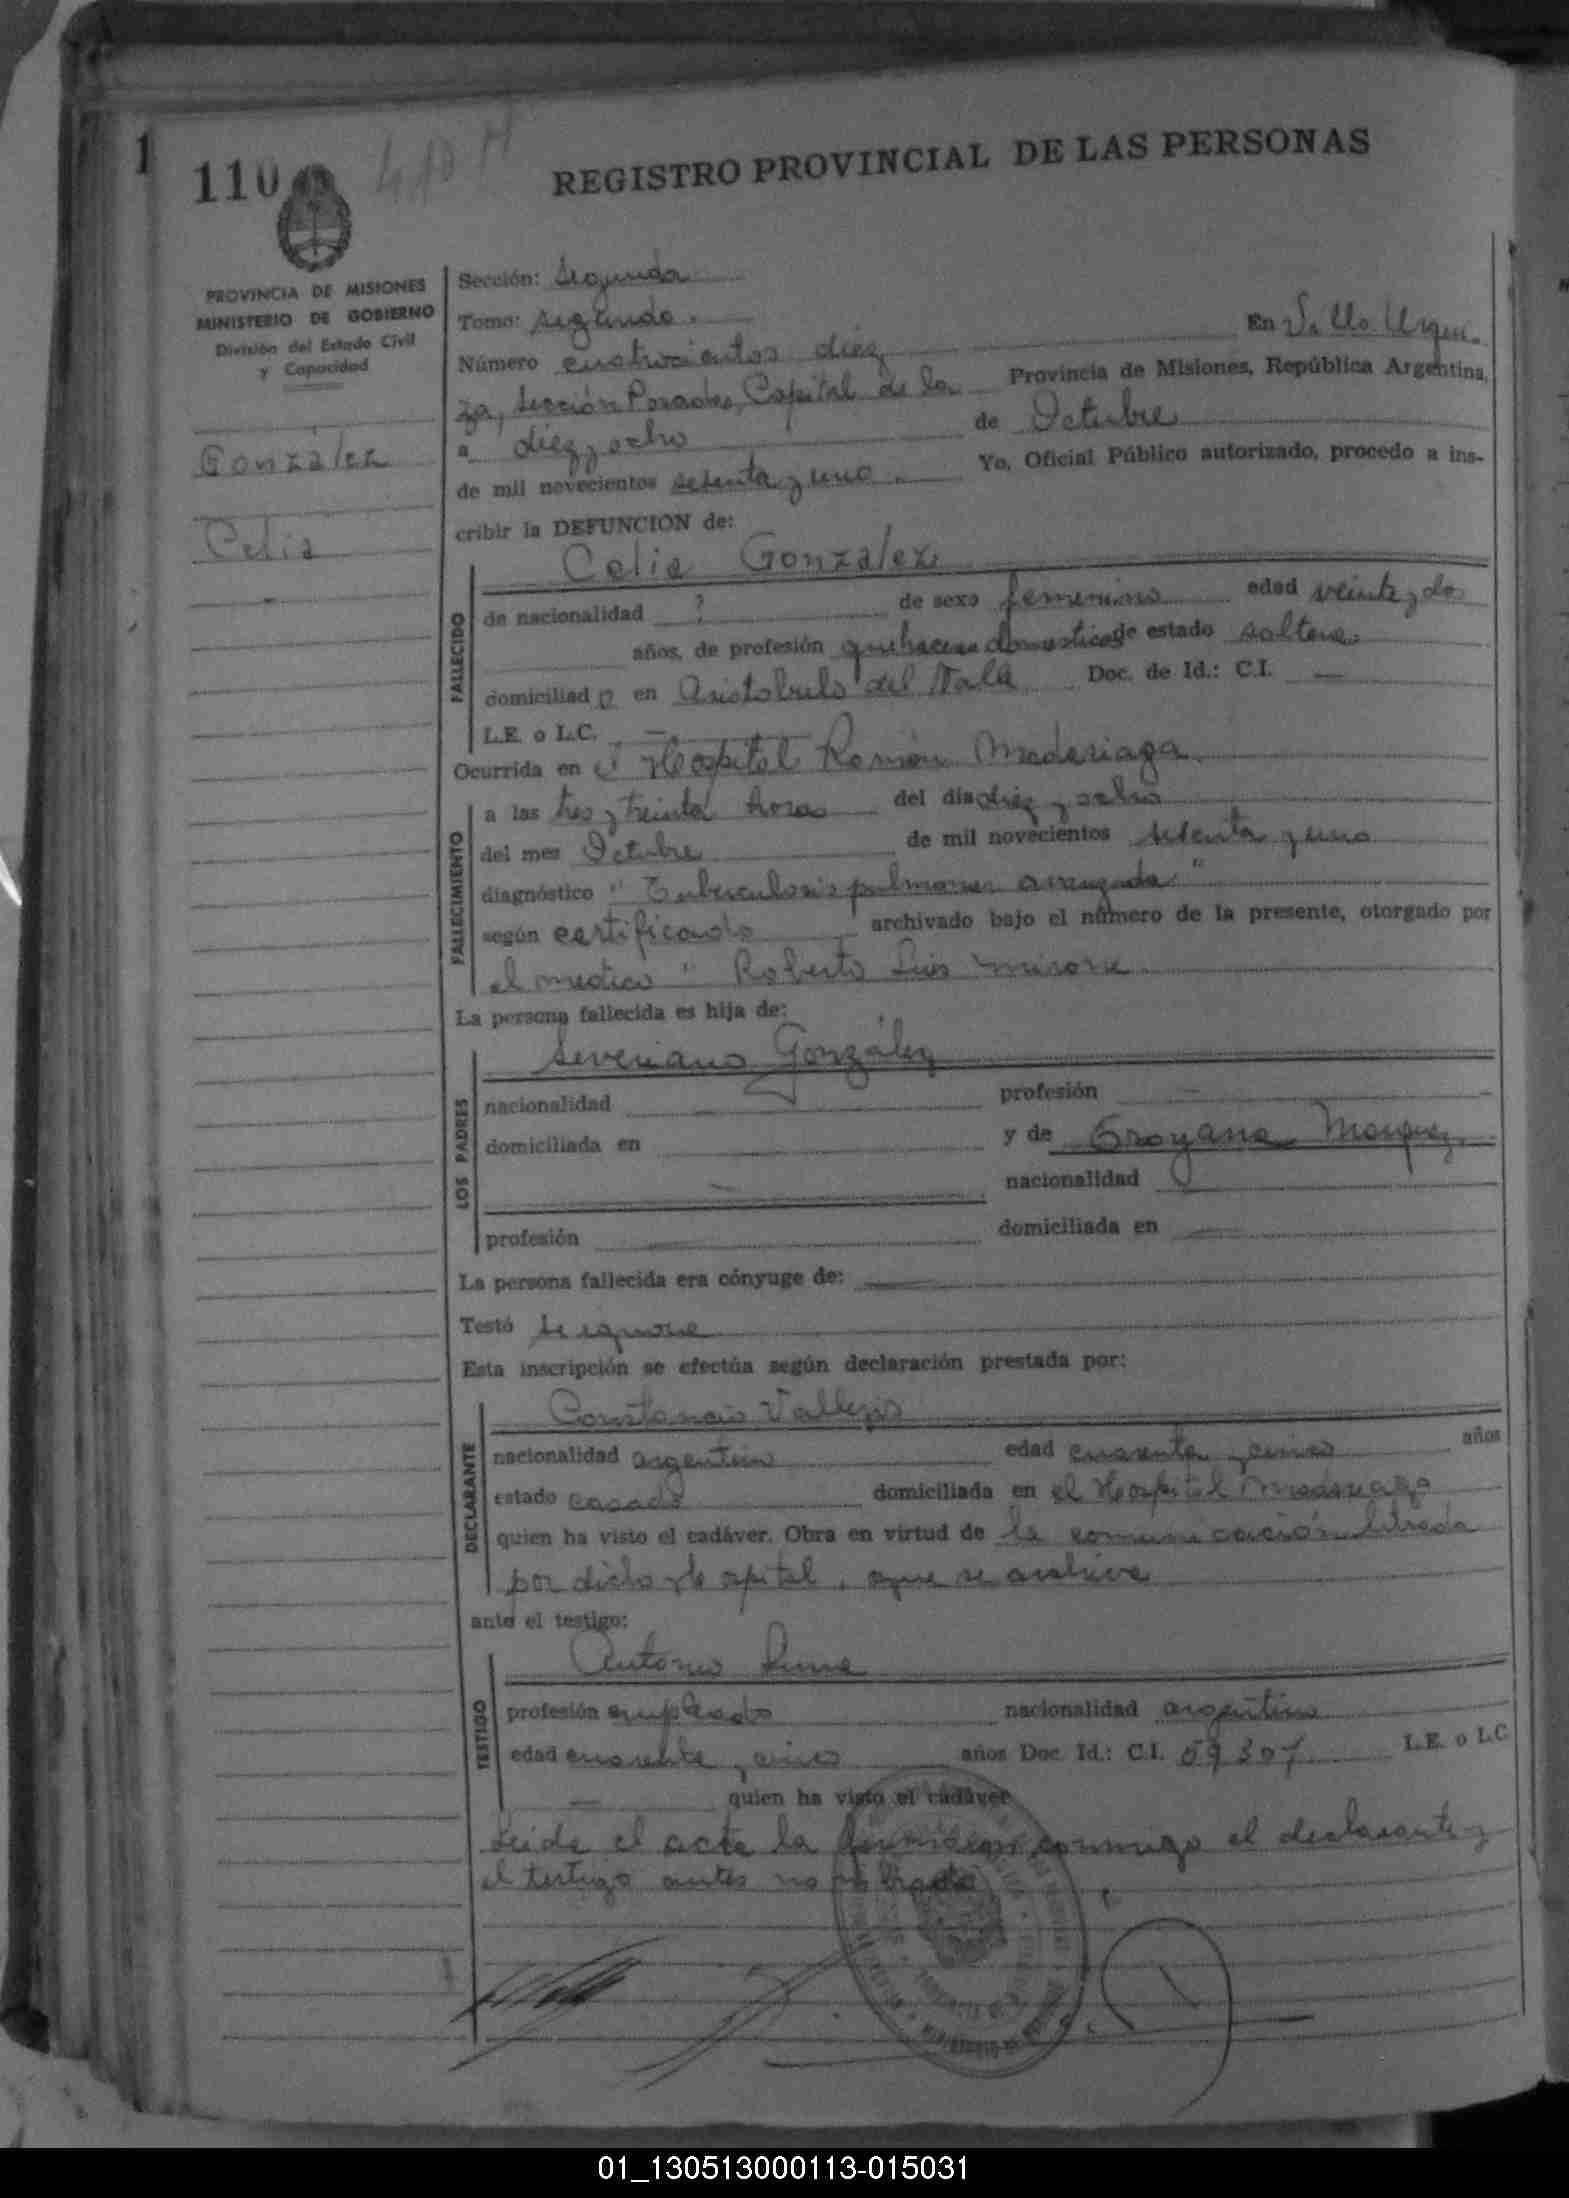 1
110
410 H
REGISTRO PROVINCIAL DE LAS PERSONAS
PROVINCIA DE MISIONES
MINISTERIO DE GOBIERNO
División del Estado Civil
y Capacidad
González
Celia
Sección: Segunda
Tomo: segundo. En Villa Urqui.
Número cuatrocientos diez
za, sección Posadas, Capital de la Provincia de Misiones, República Argentina,
a diez y ocho de Octubre
de mil novecientos setenta y uno. Yo, Oficial Público autorizado, procedo a ins-
cribir la DEFUNCION de:
Celia González
FALLECIDO
de nacionalidad ? de sexo femenino edad veinte y dos
años, de profesión quehaceres domesticos de estado soltera
domiciliad a en Aristobulo del Valle Doc. de Id.: C.I. —
L.E. o L.C. —
Ocurrida en el Hospital Ramón Madariaga
FALLECIMIENTO
a las tres y treinta horas del dia diez y ocho
del mes Octubre de mil novecientos setenta y uno
diagnóstico "Tuberculosis pulmonar avanzada"
según certificado archivado bajo el número de la presente, otorgado por
el medico " Roberto Luis
La persona fallecida es hija de:
LOS PADRES
Severiano González
nacionalidad — profesión —
domiciliada en — y de Troyana
— nacionalidad
profesión — domiciliada en —
La persona fallecida era cónyuge de: —
Testó se ignora
Esta inscripción se efectúa según declaración prestada por:
DECLARANTE
Constancio Vallejos
nacionalidad argentino edad cuarenta y cinco años
estado casado domiciliada en el Hospital Madariaga
quien ha visto el cadáver. Obra en virtud de la comunicación librada
por dicho Hospital, que se archiva
ante el testigo:
TESTIGO
Antonio Luna
profesión empleado nacionalidad argentino
edad cuarenta y cinco años Doc. Id.: C.I. 59307 L.E. o L.C
— quien ha visto el cadáver
Leida el acta la firmaron conmigo el declarante y
el testigo antes nombrado
01_130513000113-015031